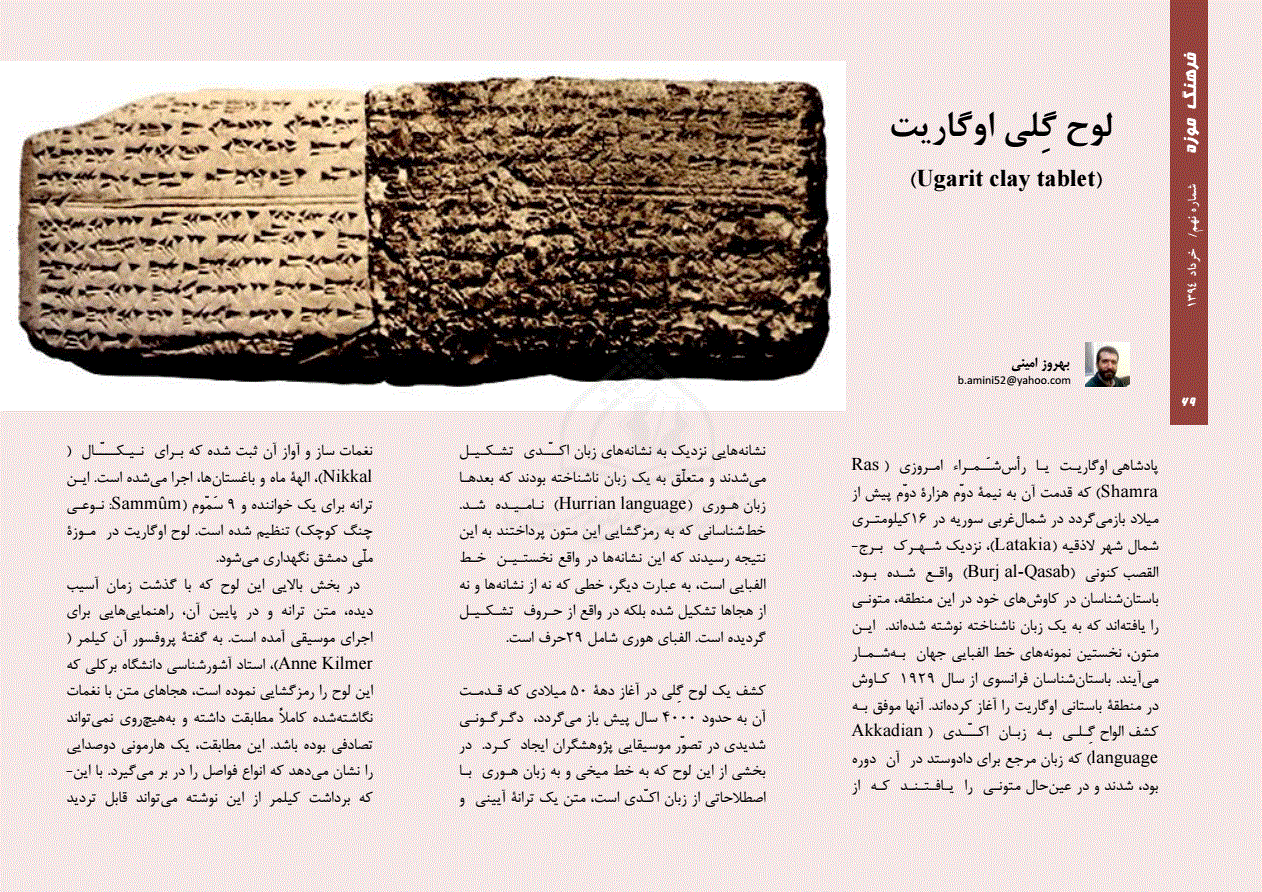 فرهنگ موزه
شماره نهم/ خرداد ۱۳۹۴
۶۹
لوح گِلی اوگاریت
(Ugarit clay tablet)
بهروز امینی
b.amini52@yahoo.com
پادشاهی اوگاریت یا رأس‌شَمراء امروزی (Ras
Shamra) که قدمت آن به نیمهٔ دوّم هزارهٔ دوّم پیش از
میلاد بازمی‌گردد در شمال‌غربی سوریه در ۱۶کیلومتری
شمال شهر لاذقیه (Latakia)، نزدیک شهرک برج-
القصب کنونی (Burj al-Qasab) واقع شده بود.
باستان‌شناسان در کاوش‌های خود در این منطقه، متونی
را یافته‌اند که به یک زبان ناشناخته نوشته شده‌اند. این
متون، نخستین نمونه‌های خط الفبایی جهان به‌شمار
می‌آیند. باستان‌شناسان فرانسوی از سال ۱۹۲۹ کاوش
در منطقهٔ باستانی اوگاریت را آغاز کرده‌اند. آنها موفق به
کشف الواح گِلی به زبان اکـّدی (Akkadian
language) که زبان مرجع برای دادوستد در آن دوره
بود، شدند و در عین‌حال متونی را یافتند که از
نشانه‌هایی نزدیک به نشانه‌های زبان اکـّدی تشکیل
می‌شدند و متعلّق به یک زبان ناشناخته بودند که بعدها
زبان هوری (Hurrian language) نامیده شد.
خط‌شناسانی که به رمزگشایی این متون پرداختند به این
نتیجه رسیدند که این نشانه‌ها در واقع نخستین خط
الفبایی است، به عبارت دیگر، خطی که نه از نشانه‌ها و نه
از هجاها تشکیل شده بلکه در واقع از حروف تشکیل
گردیده است. الفبای هوری شامل ۲۹حرف است.
کشف یک لوح گِلی در آغاز دههٔ ۵۰ میلادی که قدمت
آن به حدود ۴۰۰۰ سال پیش باز می‌گردد، دگرگونی
شدیدی در تصوّر موسیقایی پژوهشگران ایجاد کرد. در
بخشی از این لوح که به خط میخی و به زبان هوری با
اصطلاحاتی از زبان اکـّدی است، متن یک ترانهٔ آیینی و
نغمات ساز و آواز آن ثبت شده که برای نیکـّال (
Nikkal)، الههٔ ماه و باغستان‌ها، اجرا می‌شده است. این
ترانه برای یک خواننده و ۹ سَمّوم (Sammûm: نوعی
چنگ کوچک) تنظیم شده است. لوح اوگاریت در موزهٔ
ملّی دمشق نگهداری می‌شود.
در بخش بالایی این لوح که با گذشت زمان آسیب
دیده، متن ترانه و در پایین آن، راهنمایی‌هایی برای
اجرای موسیقی آمده است. به گفتهٔ پروفسور آن کیلمر (
Anne Kilmer)، استاد آشورشناسی دانشگاه برکلی که
این لوح را رمزگشایی نموده است، هجاهای متن با نغمات
نگاشته‌شده کاملاً مطابقت داشته و به‌هیچ‌روی نمی‌تواند
تصادفی بوده باشد. این مطابقت، یک هارمونی دوصدایی
را نشان می‌دهد که انواع فواصل را در بر می‌گیرد. با این-
که برداشت کیلمر از این نوشته می‌تواند قابل تردید